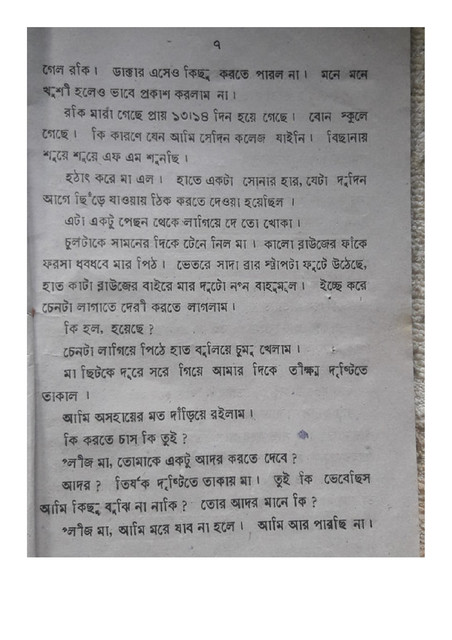 ৭
গেল রকি। ডাক্তার এসেও কিছু করতে পারল না। মনে মনে
খুশী হলেও ভাবে প্রকাশ করলাম না।
রকি মারা গেছে প্রায় ১৩।১৪ দিন হয়ে গেছে। বোন স্কুলে
গেছে। কি কারণে যেন আমি সেদিন কলেজ যাইনি। বিছানায়
শুয়ে শুয়ে এফ এম শুনছি।
হঠাৎ করে মা এল। হাতে একটা সোনার হার, যেটা দুদিন
আগে ছিঁড়ে যাওয়ায় ঠিক করতে দেওয়া হয়েছিল।
এটা একটু পেছন থেকে লাগিয়ে দে তো খোকা।
চুলটাকে সামনের দিকে টেনে নিল মা। কালো ব্লাউজের ফাঁকে
ফরসা ধবধবে মার পিঠ। ভেতরে সাদা ব্রার স্ট্রাপটা ফুটে উঠেছে,
হাত কাটা ব্লাউজের বাইরে মার দুটো নগ্ন বাহুমূল। ইচ্ছে করে
চেনটা লাগাতে দেরী করতে লাগলাম।
কি হল, হয়েছে?
চেনটা লাগিয়ে পিঠে হাত বুলিয়ে চুমু খেলাম।
মা ছিটকে দূরে সরে গিয়ে আমার দিকে তীক্ষ্ণ দৃষ্টিতে
তাকাল।
আমি অসহায়ের মত দাঁড়িয়ে রইলাম।
কি করতে চাস কি তুই?
প্লীজ মা, তোমাকে একটু আদর করতে দেবে?
আদর? তির্যক দৃষ্টিতে তাকায় মা। তুই কি ভেবেছিস
আমি কিছু বুঝি না নাকি? তোর আদর মানে কি?
প্লীজ মা, আমি মরে যাব না হলে। আমি আর পারছি না।